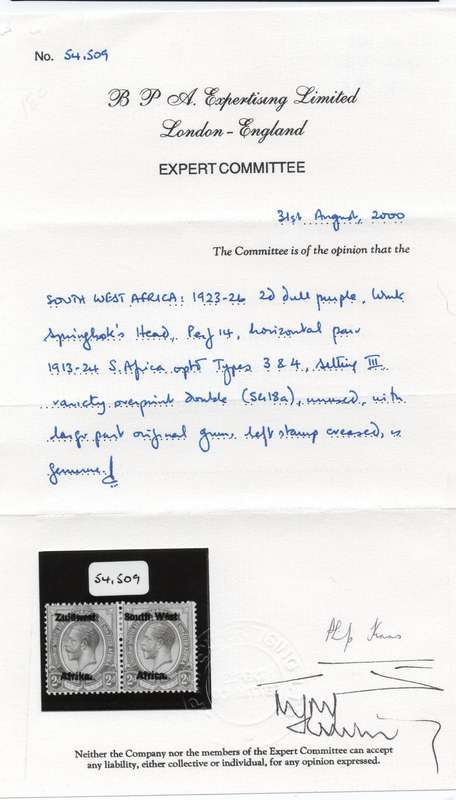 No. 54,509
B P A. Expertising Limited
London - England
EXPERT COMMITTEE
31st August, 2000
The Committee is of the opinion that the
SOUTH WEST AFRICA: 1923-26 2d dull purple, Wmk
Springbok's Head, Perf 14, horizontal pair
1913-24 S. Africa optd Types 3 & 4, setting III
variety overprint double (SG18a), unused, with
large part original gum, left stamp creased, is
genuine.
54,509
Zuidwest South West
Afrika. Africa.
Neither the Company nor the members of the Expert Committee can accept
any liability, either collective or individual, for any opinion expressed.